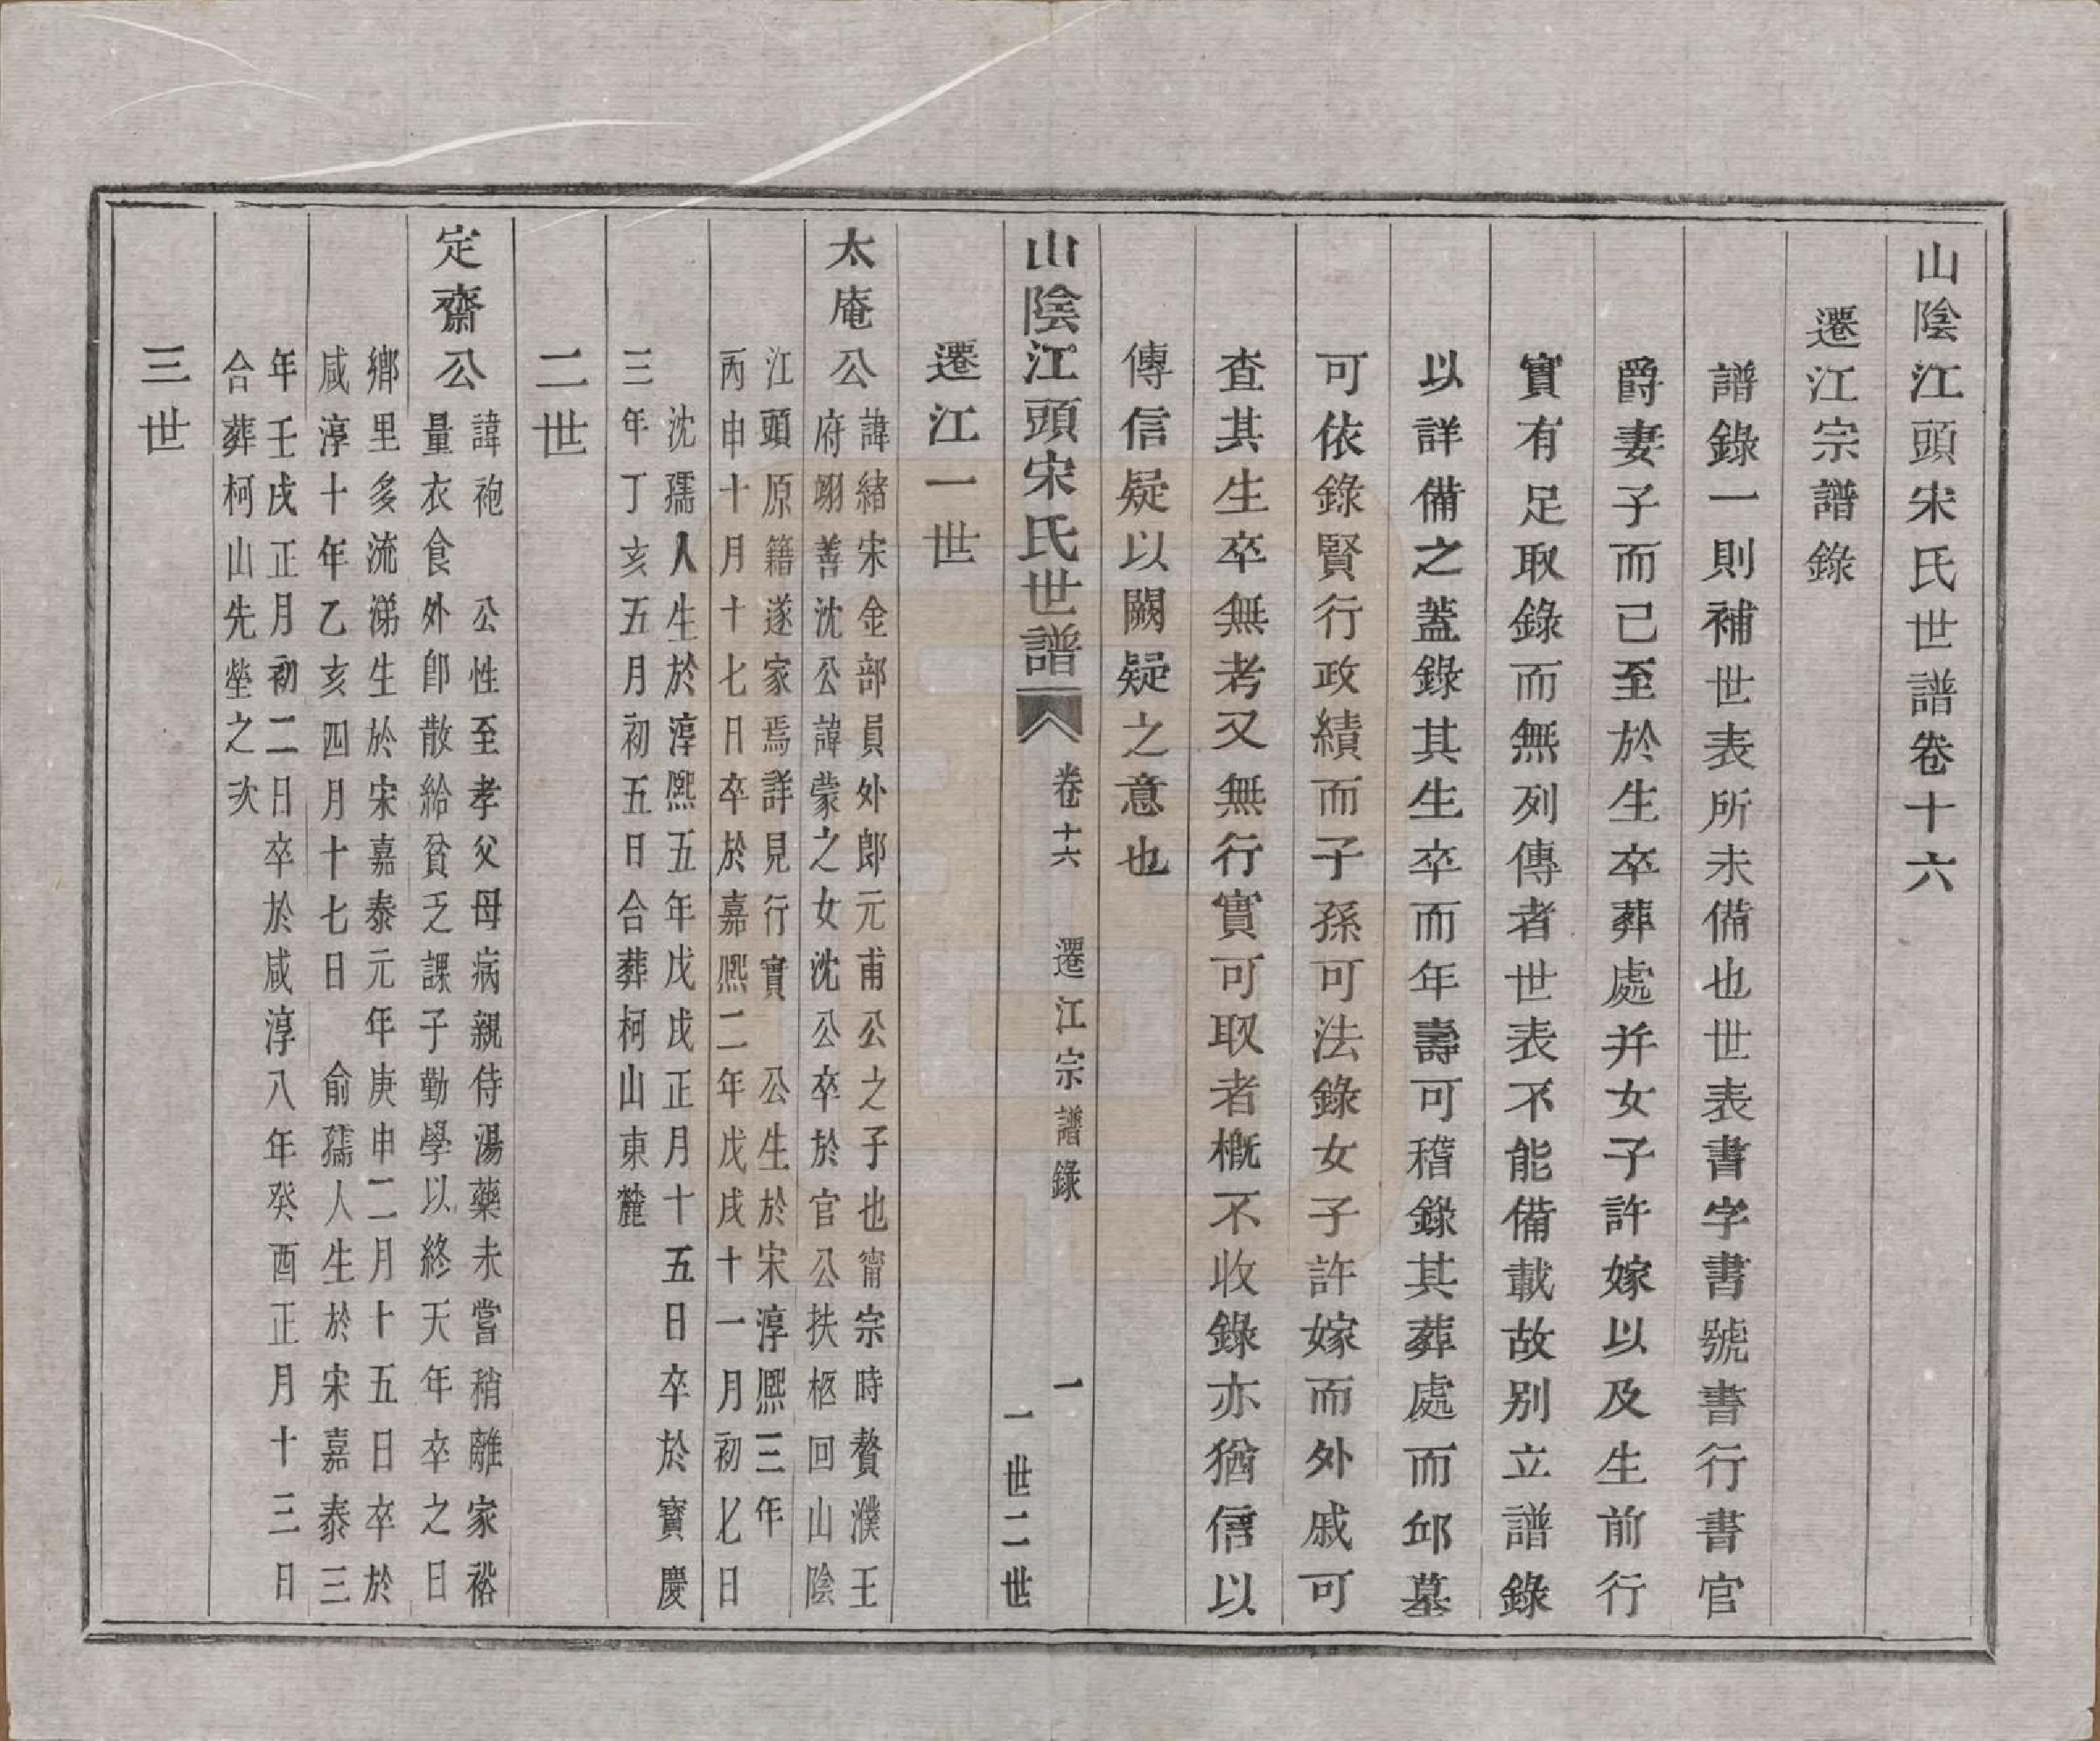 山陰江頭宋氏世譜卷十六
遷江宗譜錄
譜錄一則補世表所未備也世表書字書號書行書官
爵妻子而已至於生卒葬處并女子許嫁以及生前行
實有足取錄而無列傳者世表不能備載故别立譜錄
以詳備之蓋錄其生卒而年壽可稽錄其葬處而邱墓
可依錄賢行政績而子孫可法錄女子許嫁而外戚可
查其生卒無考又無行實可取者概不收錄亦猶信以
傳信疑以闕疑之意也
山陰江頭宋氏世譜
卷十六　遷江宗譜錄　一
一世二世
遷江一世
太庵公
諱緒宋金部員外郎元甫公之子也甯宗時贅濮王
府翊善沈公諱蒙之女沈公卒於官公扶柩回山陰
江頭原籍遂家焉詳見行實　公生於宋淳熙三年
丙申十月十七日卒於嘉熙二年戊戌十一月初七日
沈孺人生於淳熙五年戊戌正月十五日卒於寶慶
三年丁亥五月初五日合葬柯山東麓
二世
定齋公
諱袍　公性至孝父母病親侍湯藥未嘗稍離家裕
量衣食外卽散給貧乏課子勤學以終天年卒之日
鄉里多流涕生於宋嘉泰元年庚申二月十五日卒於
咸淳十年乙亥四月十七日　俞孺人生於宋嘉泰三
年壬戌正月初二日卒於咸淳八年癸酉正月十三日
合葬柯山先塋之次
三世